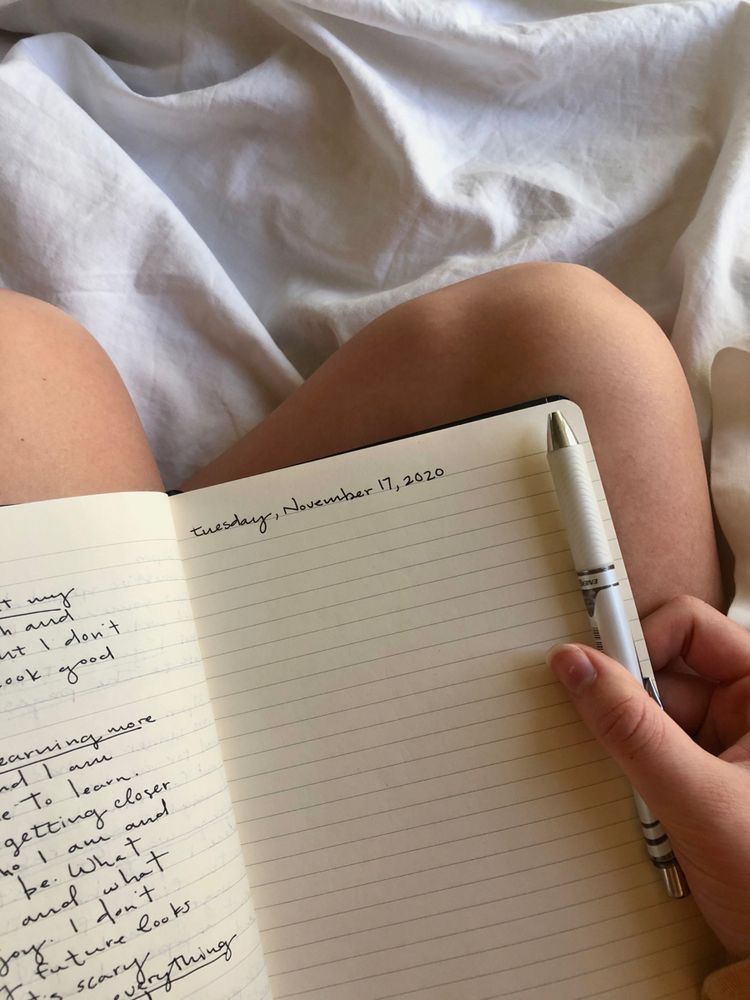 t my
h and
ut I don't
ook good
earning more
nd I am
e to learn.
getting closer
ho I am and
be. What
and what
joy. I don't
t future looks
s scary
everything
tuesday, November 17, 2020